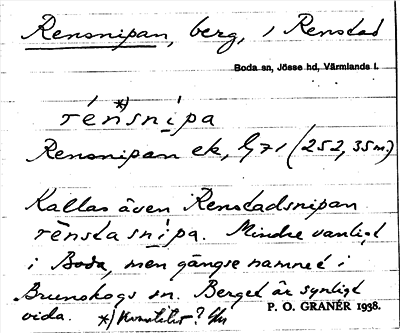 Rensnipan, berg, i Renstad
Boda sn, Jösse hd, Värmlands l.
*)
rénsnípa
Rensnipan ek, G71 (252,35m)
Kallas även Renstadsnipan
rēnstasnípa. Mindre vanligt
i Boda, men gängse namnet i
Brunskogs sn. Berget är synligt
vida. *) Kvantitet?
P. O. GRANÉR 1938.